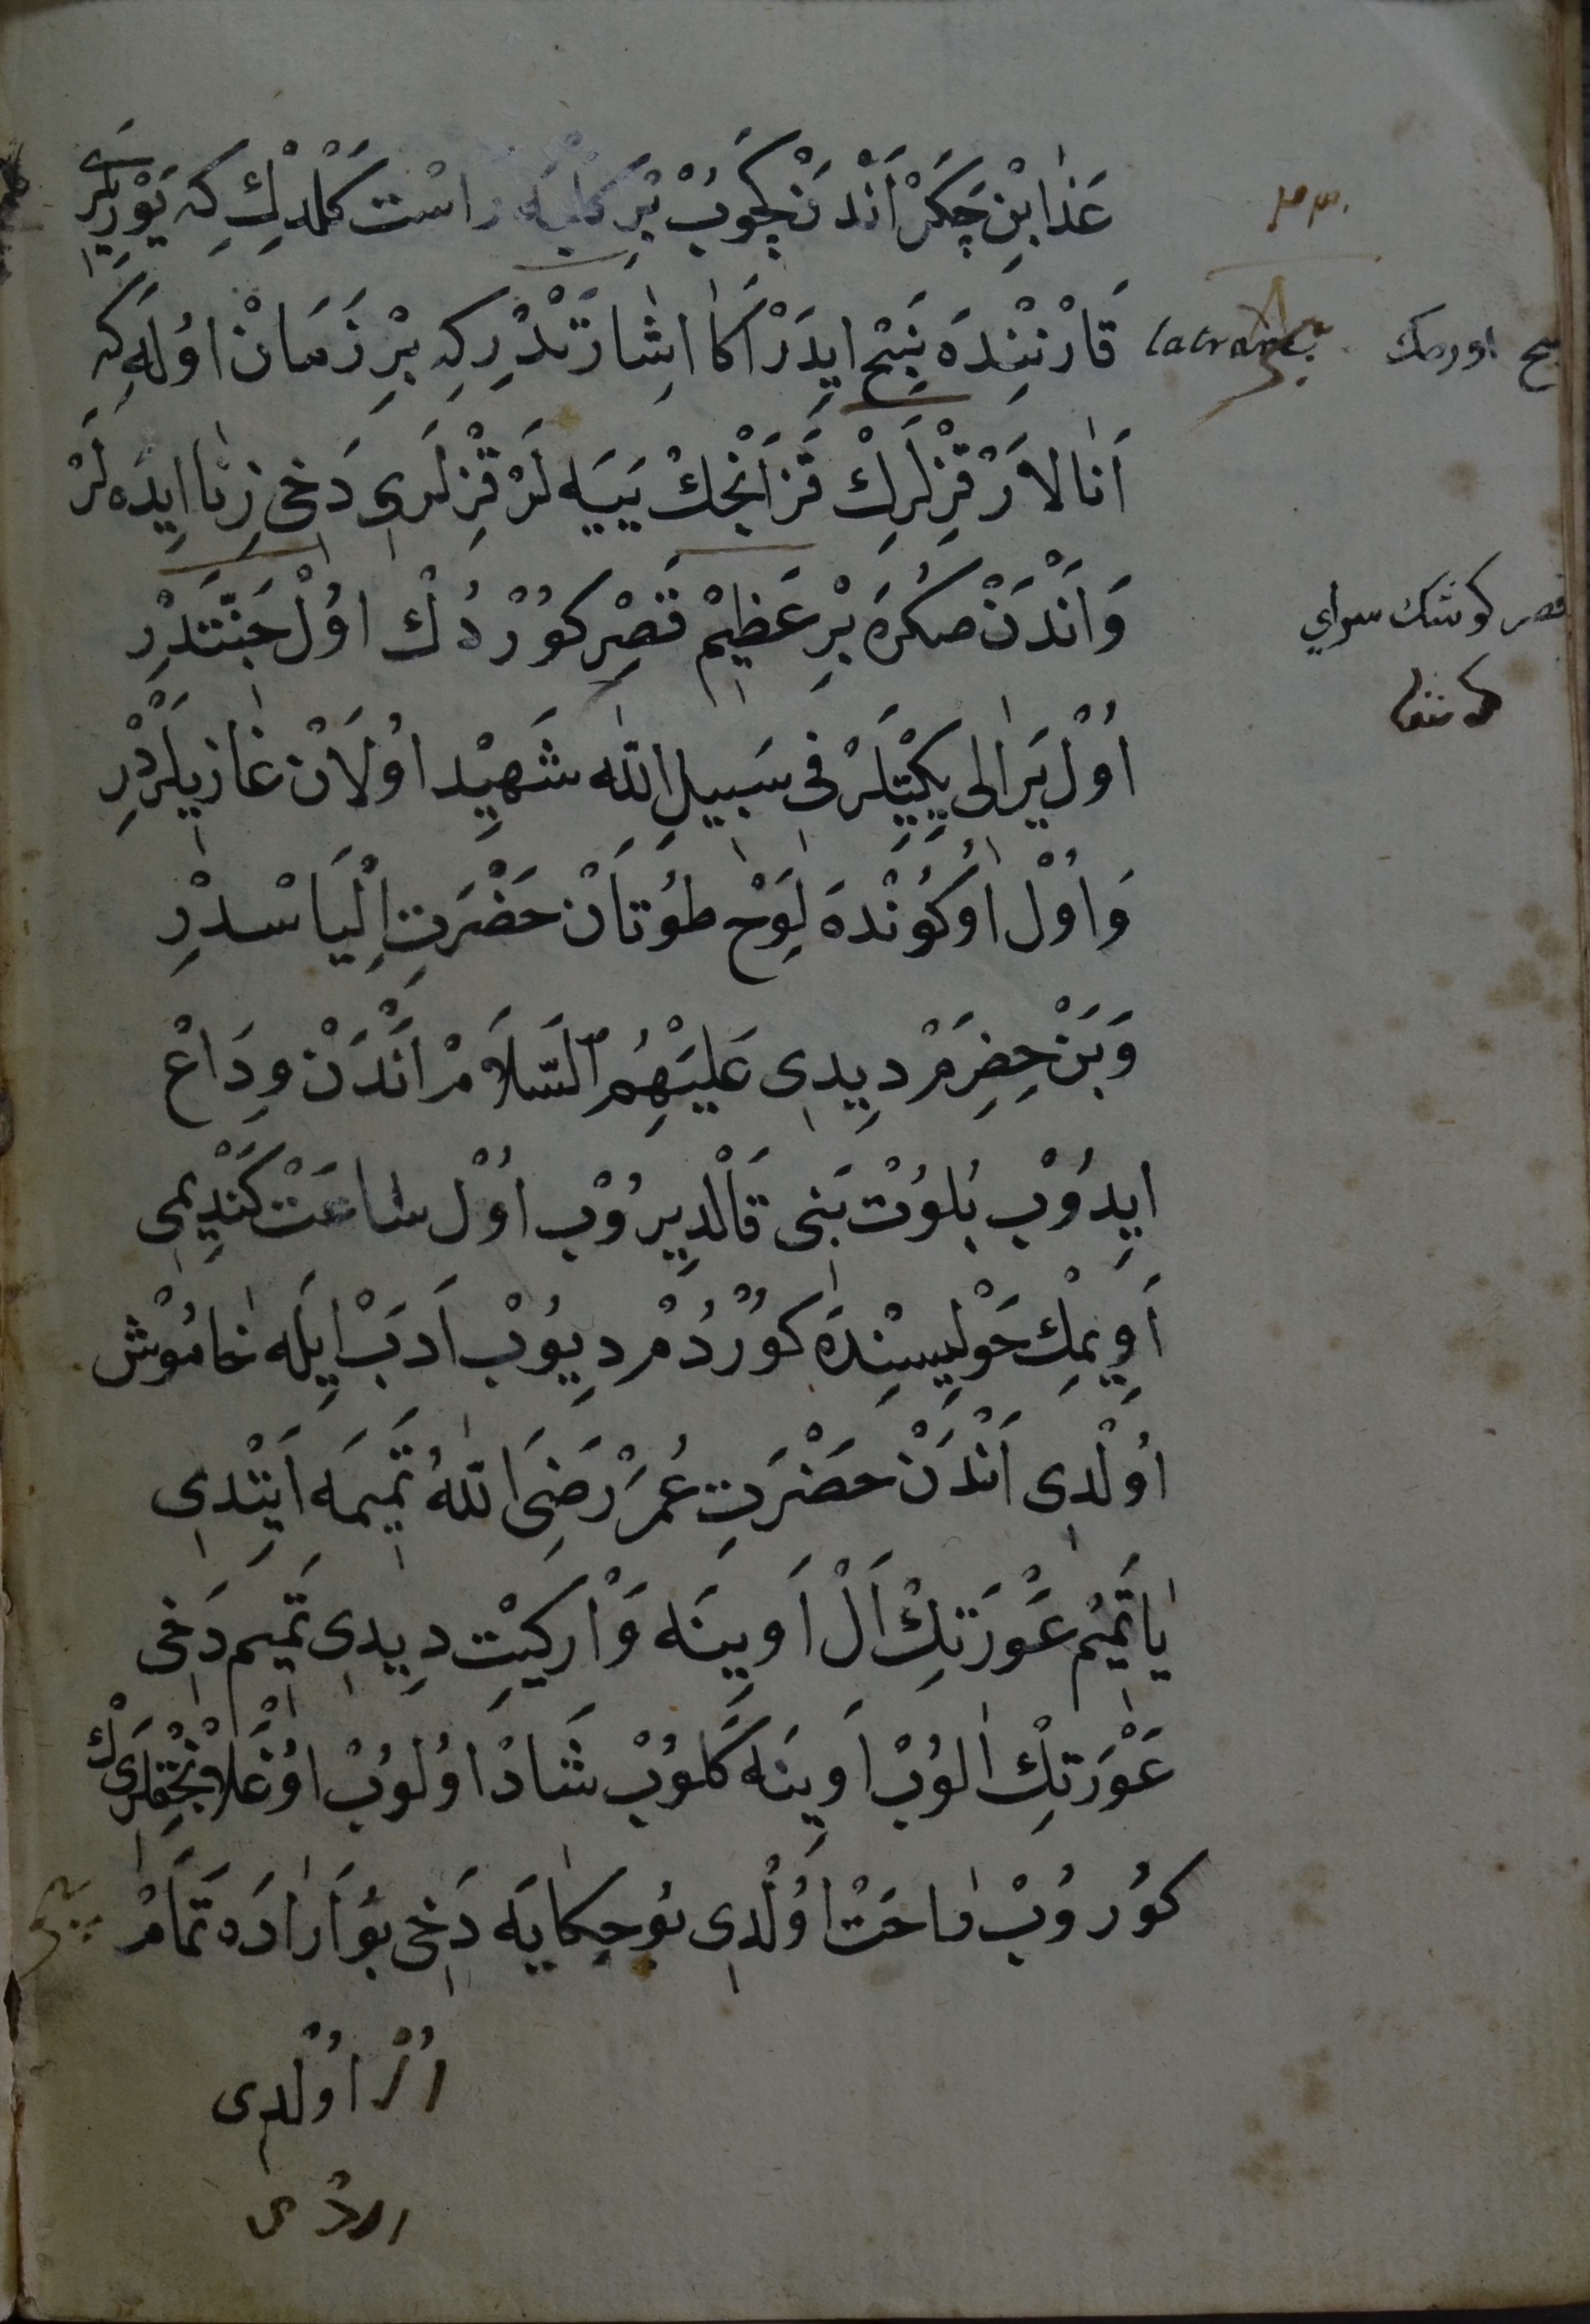 عَذَابِنْ چَكَرْ اَنْدَنْ كَچُوبْ بِرْ كَلْبَه رَاسْت كَلْدِكْ كِه يَوْرِيلَرِي
قَارْنِنْدَه نَبِحْ ايِدَرْ اَكَا اِشَارَتْدُرْ كِه بِرْ زَمَانْ اوُلَه كِه
اَنَالَارْ قِزْلَرِكْ قَزَانْجِكْ يَيَه لَرْ قِزْلَرِى دَخِى زِنَا ايِدَه لَرْ
وَاَنْدَنْ صكره بِرْ عَظِيمْ قَصِرْ كوُرْدُكْ اوُلْ جَنَّتْدِرْ
اوُلْ يَرَالِى يِكِيتْلَرْ فِى سَبِيلِ اللّٰه شَهِيدْ اوُلَانْ غَازِيلَرْدِرْ
وَاوُلْ اوُكُونْدَه لَوْحْ طُوتَانْ حَضْرَتِ اِلْيَاسْدِرْ
وَبَنْ حِضِرَمْ دِيدِى عَلَيْهِمُ السَّلَامْ اَنْدَنْ وِدَاعْ
ايِدُوبْ بُلُوتْ بَنِى قَالْدِيرُوبْ اوُلْ سَاعَتْ كَنْدِيمِى
اَوِيمِكْ حَوْلِيسِنْدَه كوُرْدُمْ دِيوُبْ اَدَبْ اِيلَه خَامُوشْ
اوُلْدِى اَنْدَنْ حَضْرَتِ عُمَرْ رَضِىَ اللّٰهُ تَمِيمَه اَيِتْدِى
يَا تَمِيمُ عَوْرَتِكْ اَلْ اَوِينَه وَارْ كِيتْ دِيدِى تَمِيم دَخِى
عَوْرَتِكْ الُوبْ اَوِينَه كَلُوبْ شَادْ اوُلُوبْ اوُغْلَانْجِقْلَرِىكْ
كوُرُوبْ رَاحَتْ اوُلْدِى بُو حِكَايَه دَخِى بُو اَرَادَه تَمَامْ
اوُلْدِى
نبح اورمك latrare
قصر كوشك سراى